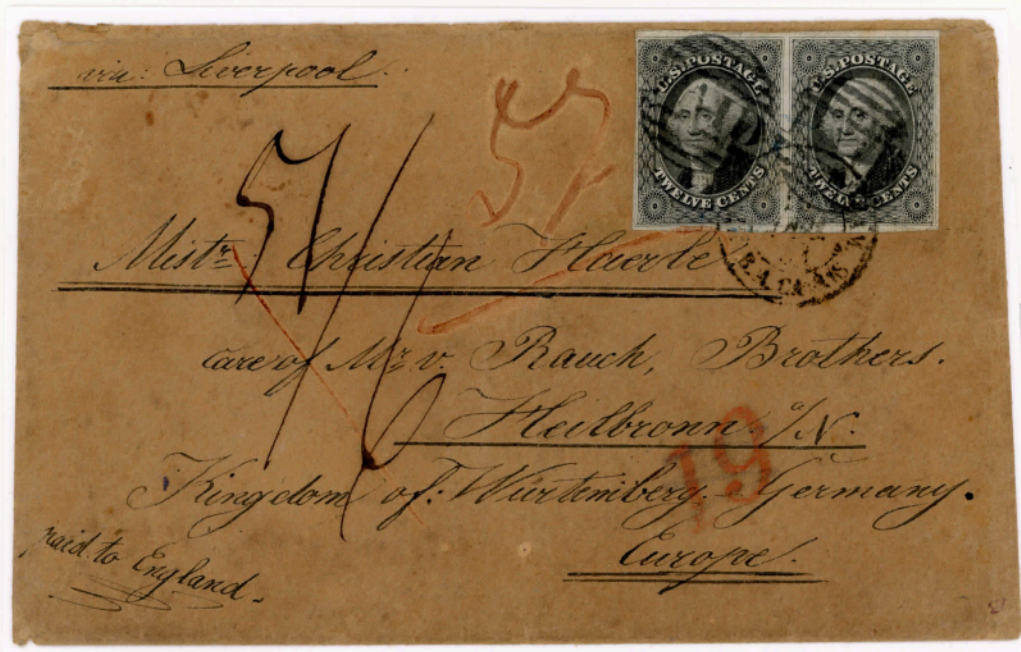 via: Liverpool.
U.S. POSTAGE
TWELVE CENTS
U.S. POSTAGE
TWELVE CENTS
57
Mistr: Christian Haerle
care of Mr. v. Rauch, Brothers.
Heilbronn a/N.
19
Kingdom of: Würtemberg. Germany.
Europe.
paid to England.